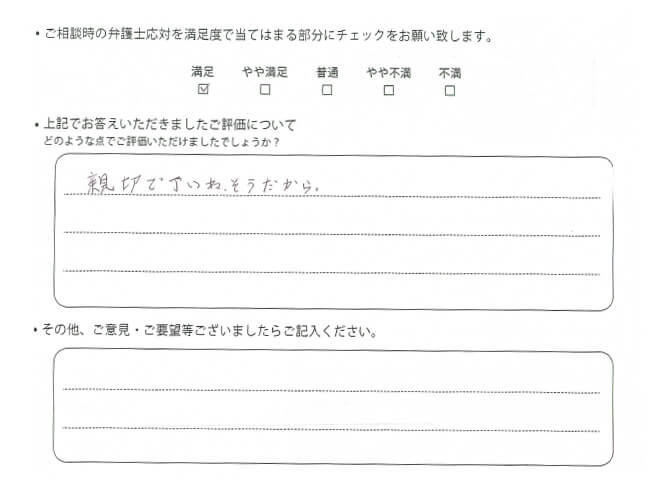 ・ご相談時の弁護士応対を満足度で当てはまる部分にチェックをお願い致します。
満足 やや満足 普通 やや不満 不満
☑ ☐ ☐ ☐ ☐
・上記でお答えいただきましたご評価について
どのような点でご評価いただけましたでしょうか？
親切でていね.そうだから.
・その他、ご意見・ご要望等ございましたらご記入ください。